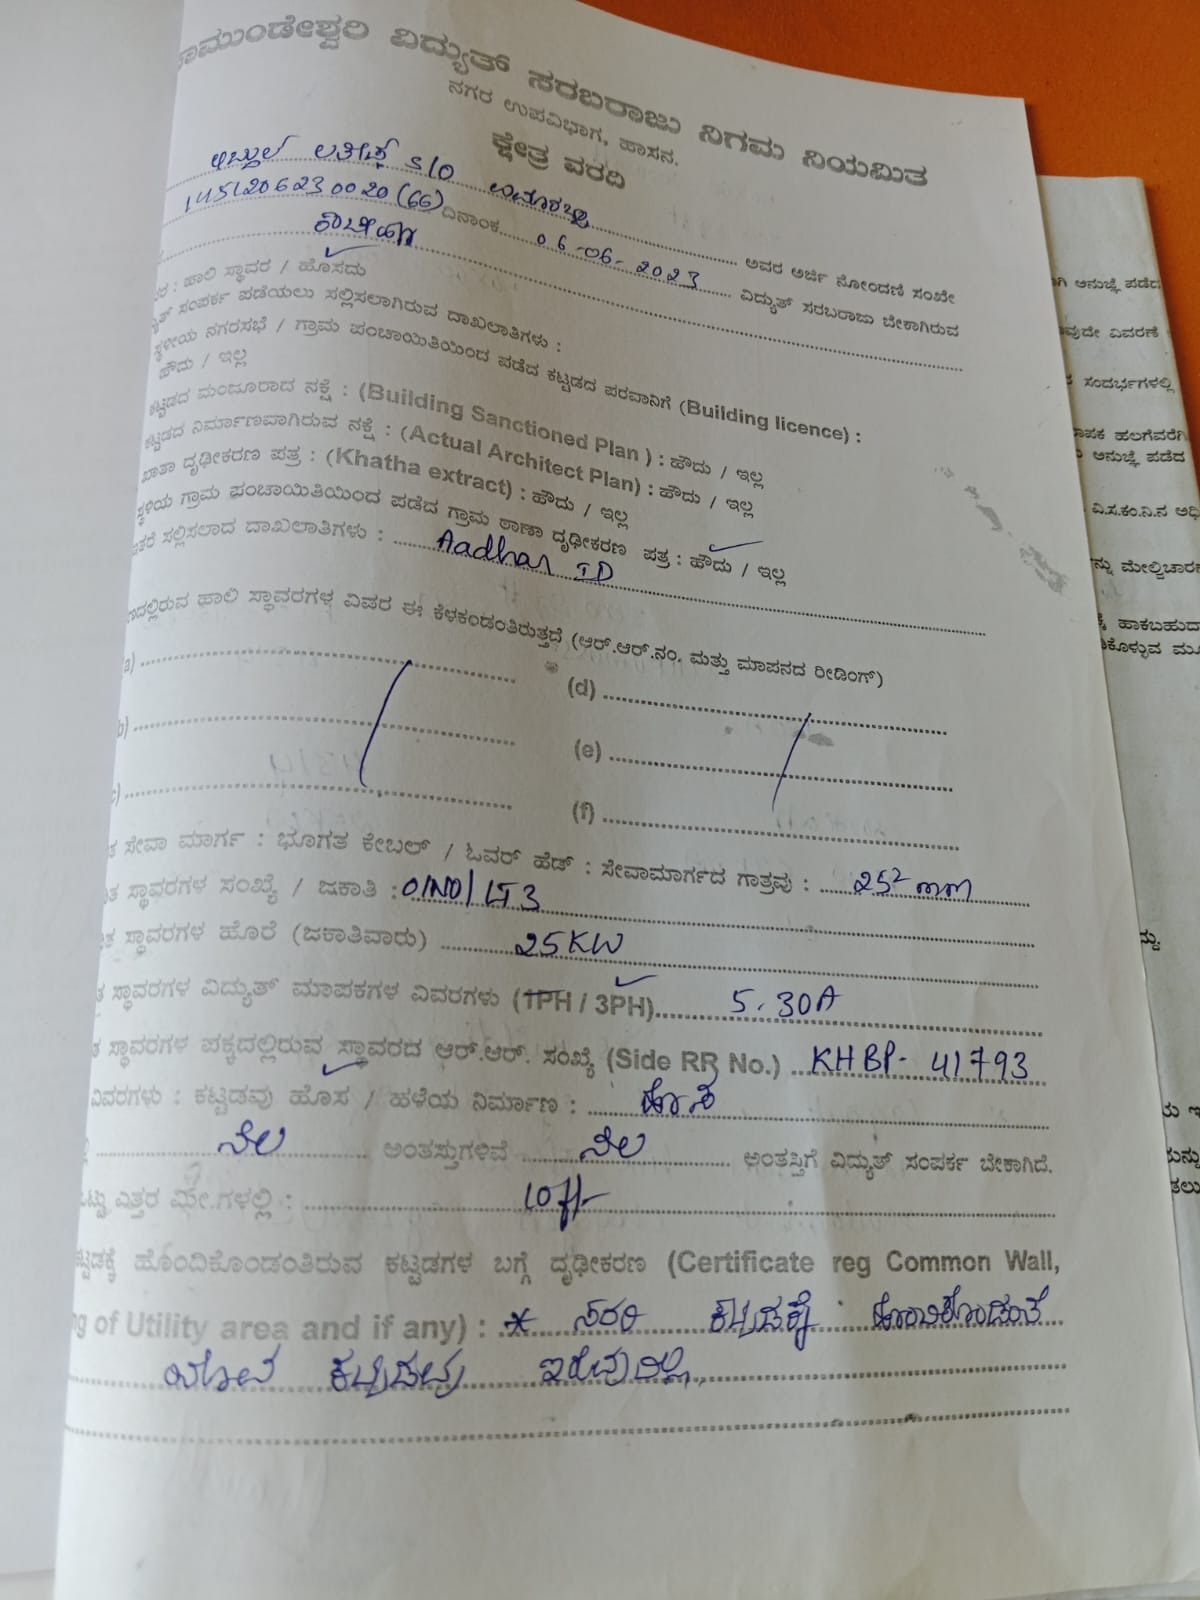 ಚಾಮುಂಡೇಶ್ವರಿ ವಿದ್ಯುತ್ ಸರಬರಾಜು ನಿಗಮ ನಿಯಮಿತ
ನಗರ ಉಪವಿಭಾಗ, ಹಾಸನ.
ಕ್ಷೇತ್ರ ವರದಿ
ಅಬ್ದುಲ್ ಲತೀಫ್ S/O ಅವರ ಅರ್ಜಿ ನೋಂದಣಿ ಸಂಖ್ಯೇ
145120623 0020 (66) ದಿನಾಂಕ 06-06-2023 ವಿದ್ಯುತ್ ಸರಬರಾಜು ಬೇಕಾಗಿರುವ
: ಹಾಲಿ ಸ್ಥಾವರ / ಹೊಸದು
ಸಂಪರ್ಕ ಪಡೆಯಲು ಸಲ್ಲಿಸಲಾಗಿರುವ ದಾಖಲಾತಿಗಳು :
ಸ್ಥಳೀಯ ನಗರಸಭೆ / ಗ್ರಾಮ ಪಂಚಾಯಿತಿಯಿಂದ ಪಡೆದ ಕಟ್ಟಡದ ಪರವಾನಿಗೆ (Building licence) :
ಹೌದು / ಇಲ್ಲ
ಕಟ್ಟಡದ ಮಂದೂರಾದ ನಕ್ಷೆ : (Building Sanctioned Plan ) : ಹೌದು / ಇಲ್ಲ
ಕಟ್ಟಡದ ನಿರ್ಮಾಣವಾಗಿರುವ ನಕ್ಷೆ : (Actual Architect Plan) : ಹೌದು / ಇಲ್ಲ
ಖಾತಾ ದೃಢೀಕರಣ ಪತ್ರ : (Khatha extract) : ಹೌದು / ಇಲ್ಲ
ಸ್ಥಳಿಯ ಗ್ರಾಮ ಪಂಚಾಯಿತಿಯಿಂದ ಪಡೆದ ಗ್ರಾಮ ಠಾಣಾ ದೃಢೀಕರಣ ಪತ್ರ : ಹೌದು / ಇಲ್ಲ
ಇತರೆ ಸಲ್ಲಿಸಲಾದ ದಾಖಲಾತಿಗಳು : Aadhar ID
ಹಾಲಿ ಸ್ಥಾವರಗಳ ವಿವರ ಈ ಕೆಳಕಂಡಂತಿರುತ್ತದೆ (ಆರ್.ಆರ್.ನಂ. ಮತ್ತು ಮಾಪನದ ರೀಡಿಂಗ್)
(d)
(e)
(f)
ಸೇವಾ ಮಾರ್ಗ : ಭೂಗತ ಕೇಬಲ್ / ಓವರ್ ಹೆಡ್ : ಸೇವಾಮಾರ್ಗದ ಗಾತ್ರವು : 25² mm
ಸ್ಥಾವರಗಳ ಸಂಖ್ಯೆ / ಜಕಾತಿ : 01NO/ LT3
ಸ್ಥಾವರಗಳ ಹೊರೆ (ಜಕಾತಿವಾರು) 25KW
ಸ್ಥಾವರಗಳ ವಿದ್ಯುತ್ ಮಾಪಕಗಳ ವಿವರಗಳು (1PH / 3PH) 5.30A
ಸ್ಥಾವರಗಳ ಪಕ್ಕದಲ್ಲಿರುವ ಸ್ಥಾವರದ ಆರ್.ಆರ್. ಸಂಖ್ಯೆ (Side RR No.) KHBP- 41793
ವಿವರಗಳು : ಕಟ್ಟಡವು ಹೊಸ / ಹಳೆಯ ನಿರ್ಮಾಣ : ಹೊಸ
ನೆಲ ಅಂತಸ್ತುಗಳಿವೆ ನೆಲ ಅಂತಸ್ತಿಗೆ ವಿದ್ಯುತ್ ಸಂಪರ್ಕ ಬೇಕಾಗಿದೆ.
ಒಟ್ಟು ಎತ್ತರ ಮೀ.ಗಳಲ್ಲಿ : 10ft
ಕಟ್ಟಡಕ್ಕೆ ಹೊಂದಿಕೊಂಡಂತಿರುವ ಕಟ್ಟಡಗಳ ಬಗ್ಗೆ ದೃಢೀಕರಣ (Certificate reg Common Wall,
of Utility area and if any) : * ಸದರಿ ಕಟ್ಟಡಕ್ಕೆ ಹೊಂದಿಕೊಂಡಂತೆ
ಯಾವ ಕಟ್ಟಡವು ಇರುವುದಿಲ್ಲ.